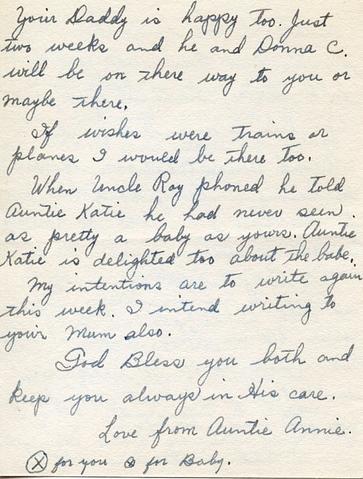 Your Daddy is happy too. Just
two weeks and he and Donna C.
will be on there way to you or
maybe there.
If wishes were trains or
planes I would be there too.
When Uncle Roy phoned he told
Auntie Katie he had never seen
as pretty a baby as yours. Auntie
Katie is delighted too about the babe.
My intentions are to write again
this week. I intend writing to
your Mum also.
God Bless you both and
keep you always in His care.
Love from Auntie Annie.
X for you x for Baby.